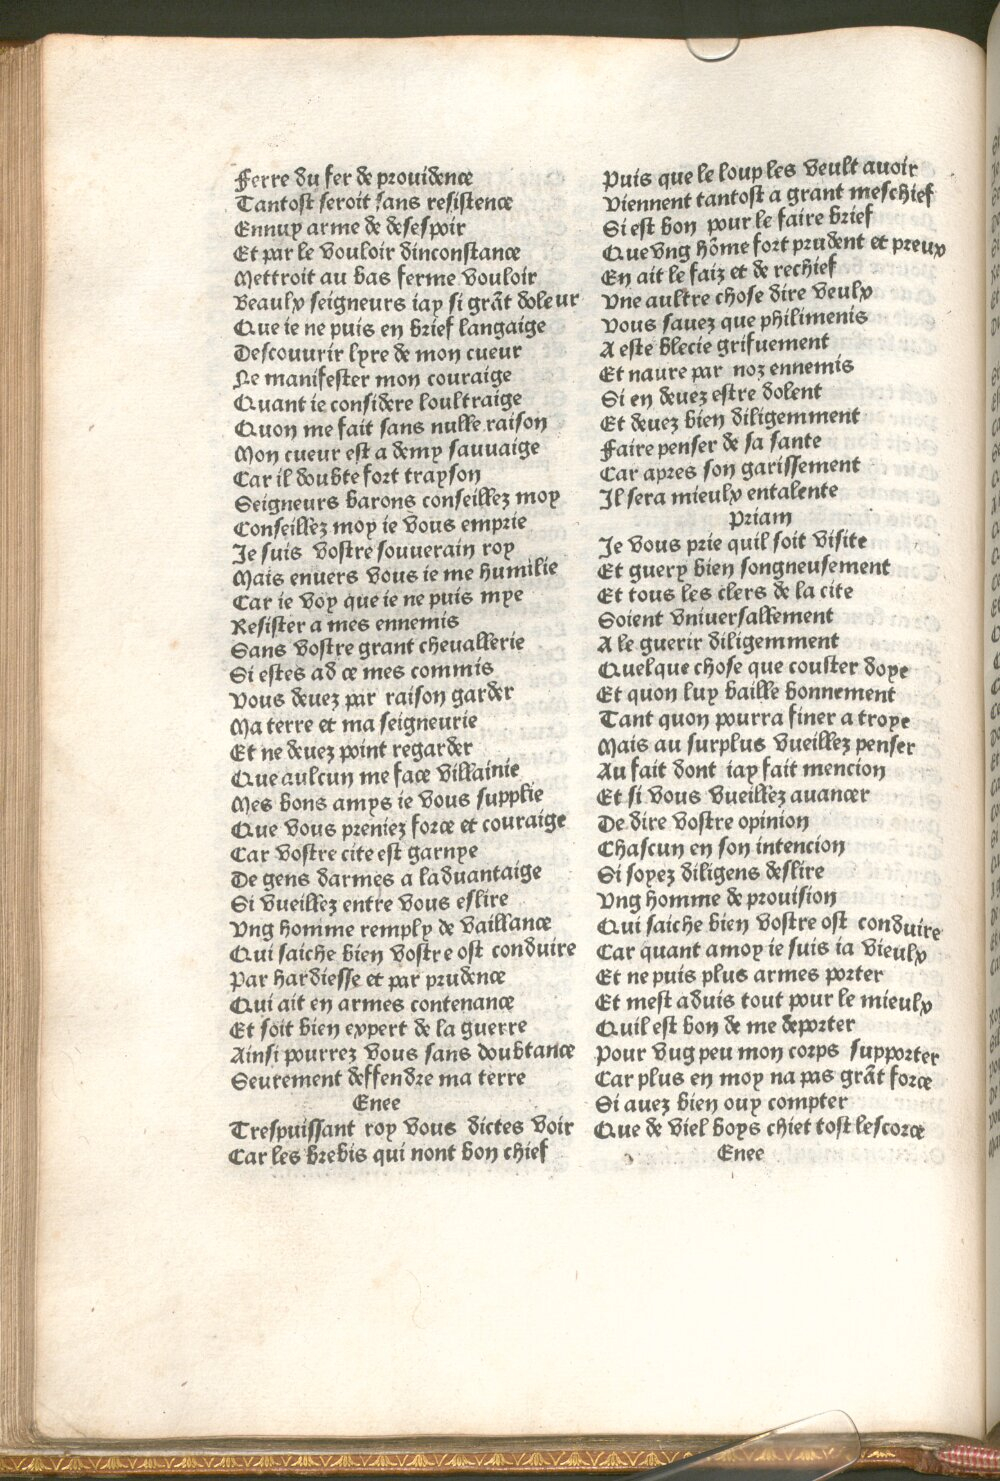 Ferre du fer de prouidence
Tantost seroit sans resistence
Ennuy arme de desespoir
Et par le vouloir dinconstance
Mettroit au bas ferme vouloir
Beaulx seigneurs iay si grãt doleur
Que ie ne puis en brief langaige
Descouurir lyre de mon cueur
Ne manifester mon couraige
Quant ie considere loultraige
Quon me fait sans nulle raison
Mon cueur est a demy sauuaige
Car il doubte fort trayson
Seigneurs barons conseillez moy
Conseillez moy ie vous emprie
Je suis vostre souuerain roy
Mais enuers vous ie me humilie
Car ie voy que ie ne puis mye
Resister a mes ennemis
Sans vostre grant cheuallerie
Si estes ad ce mes commis
Vous deuez par raison garder
Ma terre et ma seigneurie
Et ne deuez point regarder
Que aulcun me face villainie
Mes bons amys ie vous supplie
Que vous preniez force et couraige
Car vostre cite est garnye
De gens darmes a laduantaige
Si vueillez entre vous eslire
Vng homme remply de vaillance
Qui saiche bien vostre ost conduire
Par hardiesse et par prudence
Qui ait en armes contenance
Et soit bien expert de la guerre
Ainsi pourrez vous sans doubtance
Seurement deffendre ma terre
Enee
Trespuissant roy vous dictes voir
Car les brebis qui nont bon chief
Puis que le loup les veult auoir
Viennent tantost a grant meschief
Si est bon pour le faire brief
Que vng hõme fort prudent et preux
En ait le faiz et de rechief
Vne aultre chose dire veulx
Vous sauez que philimenis
A este blecie grifuement
Et naure par noz ennemis
Si en deuez estre dolent
Et deuez bien diligemment
Faire penser de sa sante
Car apres son garissement
Il sera mieulx entalente
Priam
Je vous prie quil soit visite
Et guery bien songneusement
Et tous les clers de la cite
Soient vniuersallement
A le guerir diligemment
Quelque chose que couster doye
Et quon luy baille bonnement
Tant quon pourra finer a troye
Mais au surplus vueillez penser
Au fait dont iay fait mencion
Et si vous vueillez auancer
De dire vostre opinion
Chascun en son intencion
Si soyez diligens deslire
Vng homme de prouision
Qui saiche bien vostre ost conduire
Car quant amoy ie suis ia vieulx
Et ne puis plus armes porter
Et mest aduis tout pour le mieulx
Quil est bon de me deporter
Pour vug peu mon corps supporter
Car plus en moy na pas grãt force
Si auez bien ouy compter
Que de viel boys chiet tost lescorce
Enee